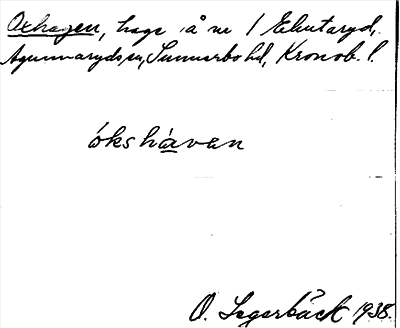 Oxhagen, hage å nr 1 Ekhutaryd,
Agunnaryds sn, Sunnerbo hd, Kronob. l.
ókshávan
O. Segerbäck 1938.